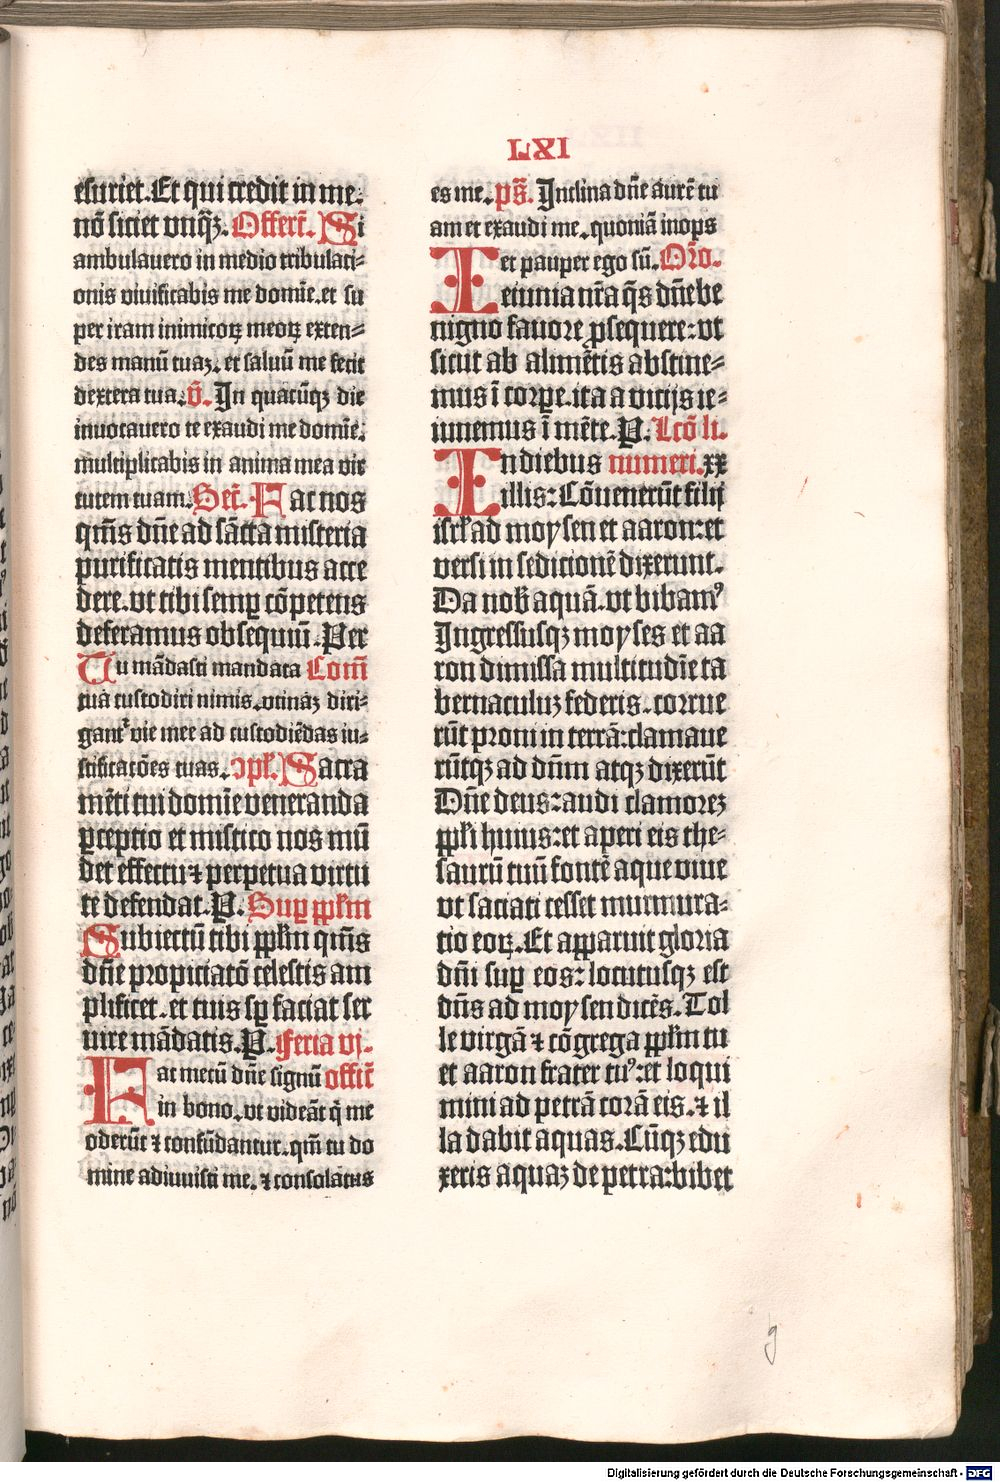 LXI
esuriet. Et qui credit in me:
nō siciet vnqȝ. Offert̄. Si
ambulauero in medio tribulati-
onis viuificabis me domīe. et su
per iram inimicoꝝ meoꝝ exten-
des manū tuaȝ. et saluū me fecit
dextera tua. v̄. In quacūqȝ die
inuocauero te exaudi me domīe:
multiplicabis in anima mea vir
tutem tuam. Sec̄. Fac nos
qm̄s dn̄e ad sācta misteria
purificatis mentibus acce
dere. vt tibi semꝑ cōpetens
deferamus obsequiū. Per
Tu mādasti mandata Com̄
tua custodiri nimis. vtinaȝ diri-
gantᷣ vie mee ad custodiēdas iu-
stificatōes tuas. ꝯpl̄. Sacra
mēti tui domīe veneranda
ꝑceptio et mistico nos mū
det effectu ⁊ perpetua virtu
te defendat. P. Suꝑ ppl̄m
Subiectū tibi ppl̄m qm̄s
dn̄e propiciatō celestis am
plificet. et tuis sꝑ faciat ser
uire mādatis. P. Feria vj.
Fac mecū dn̄e signū offic̄
in bono. vt videāt q̄ me
oderūt ⁊ confūdantur. qm̄ tu do
mine adiuuisti me. ⁊ consolatus
es me. ps̄. Inclina dn̄e aurē tu
am et exaudi me. quoniā inops
et pauper ego sū. Or̄o.
Ieiunia nr̄a q̄s dn̄e be
nigno fauore ꝓsequere: vt
sicut ab alimētis abstine-
mus ī corꝑe. ita a vicijs ie-
iunemus ī mēte. P. Lcō li.
In diebus numeri. xx
illis: Cōuenerūt filij
isrl̄ ad moysen et aaron: et
versi in sedicionē dixerunt.
Da nob̄ aquā. vt bibamꝰ
Ingressusqȝ moyses et aa
ron dimissa multitudīe ta
bernaculuȝ federis. corrue
rūt proni in terrā: clamaue
rūtqȝ ad dn̄m atqȝ dixerūt
Dn̄e deus: audi clamoreȝ
ppl̄i huius: et aperi eis the-
saurū tuū fontē aque viue
vt saciati cesset murmura-
tio eoꝝ. Et apparuit gloria
dn̄i suꝑ eos: locutusqȝ est
dn̄s ad moysen dicēs. Tol
le virgā ⁊ cōgrega ppl̄m tu
et aaron frater tuꝰ: et loqui
mini ad petrā corā eis. ⁊ il
la dabit aquas. Cūqȝ edu
xeris aquaȝ de petra: bibet
g
Digitalisierung gefördert durch die Deutsche Forschungsgemeinschaft - DFG